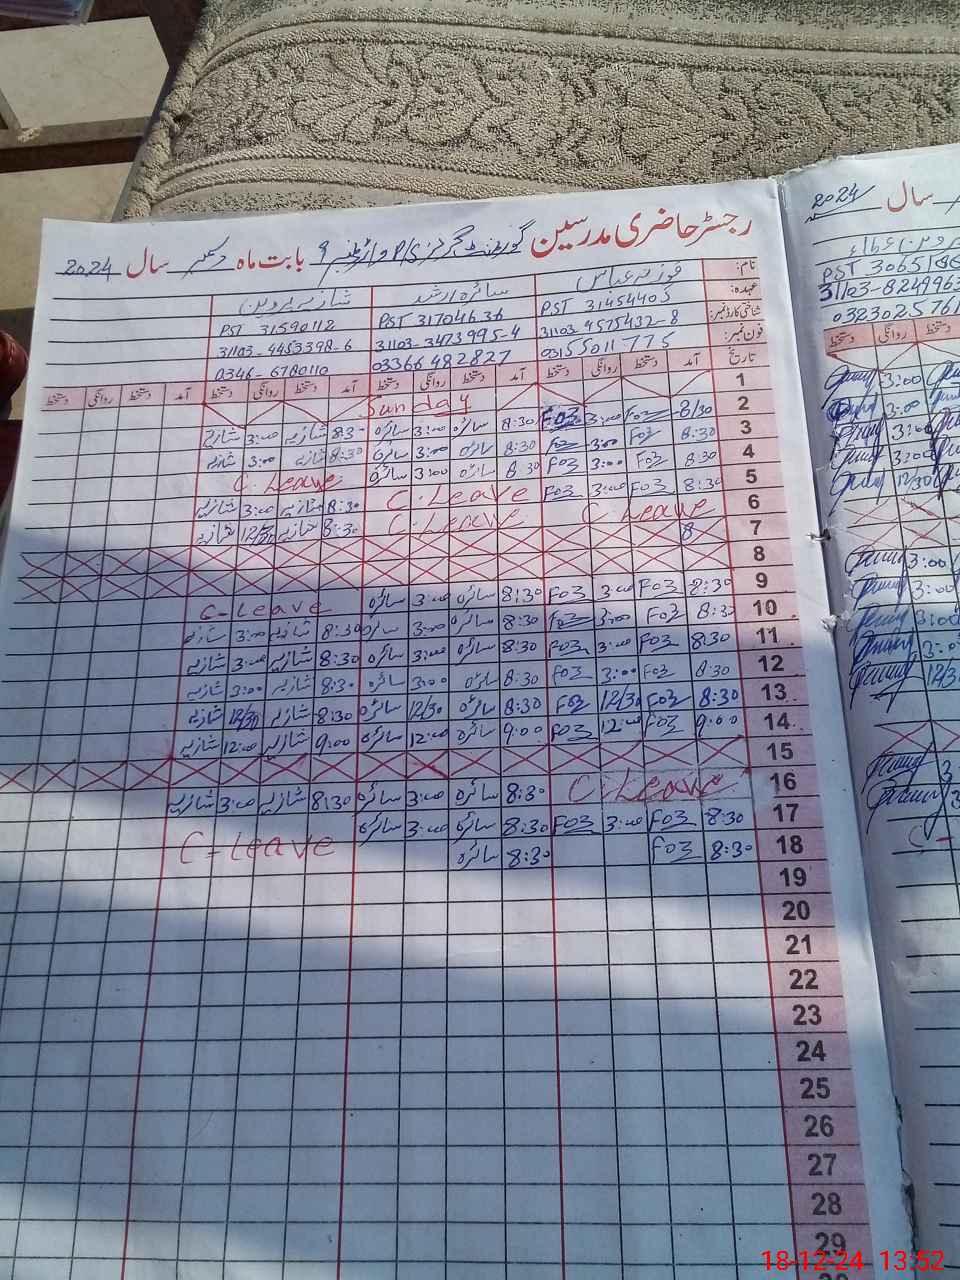 رجسٹر حاضری مدرسین گورنمنٹ گرلز P/S بابت ماہ دسمبر سال 2024
نام: فوزیہ عباس سائرہ ارشد شازیہ پروین
عہدہ: PST 31454405 PST 31704636 PST 31590112
شناختی کارڈ نمبر: 31103-4575432-8 31103-3473995-4 31103-4453398-6
فون نمبر: 03155011775 03366482827 0346-6780110
تاریخ آمد دستخط روانگی دستخط آمد دستخط روانگی دستخط آمد دستخط روانگی دستخط آمد دستخط روانگی دستخط
1 Sunday
2 8/30 Foz 3:00 Foz 8:30 سائرہ 3:00 سائرہ 8:30 شازیہ 3:00 شازیہ
3 8:30 Foz 3:00 Foz 8:30 سائرہ 3:00 سائرہ 8:30 شازیہ 3:00 شازیہ
4 8:30 Foz 3:00 Foz 8:30 سائرہ 3:00 سائرہ C. Leave
5 8:30 Foz 3:00 Foz C. Leave 8:30 شازیہ 3:00 شازیہ
6 C. Leave C. Leave 8:30 شازیہ 12/30 شازیہ
7 8
8
9 8:30 Foz 3:00 Foz 8:30 سائرہ 3:00 سائرہ C-Leave
10 8:30 Foz 3:00 Foz 8:30 سائرہ 3:00 سائرہ 8:30 شازیہ 3:00 شازیہ
11 8:30 Foz 3:00 Foz 8:30 سائرہ 3:00 سائرہ 8:30 شازیہ 3:00 شازیہ
12 8:30 Foz 3:00 Foz 8:30 سائرہ 3:00 سائرہ 8:30 شازیہ 3:00 شازیہ
13 8:30 Foz 12/30 Foz 8:30 سائرہ 12/30 سائرہ 8:30 شازیہ 12/30 شازیہ
14 9:00 Foz 12:00 Foz 9:00 سائرہ 12:00 سائرہ 9:00 شازیہ 12:00 شازیہ
15
16 C. Leave 8:30 سائرہ 3:00 سائرہ 8:30 شازیہ 3:00 شازیہ
17 8:30 Foz 3:00 Foz 8:30 سائرہ 3:00 سائرہ C-Leave
18 8:30 Foz 8:30 سائرہ
19
20
21
22
23
24
25
26
27
28
29
سال 2024
31103-8249963
0323025761
دستخط روانگی دستخط
3:00
3:00
3:00
3:00
12/30
3:00
3:00
3:00
3:00
12/30
18-12-24 13:52